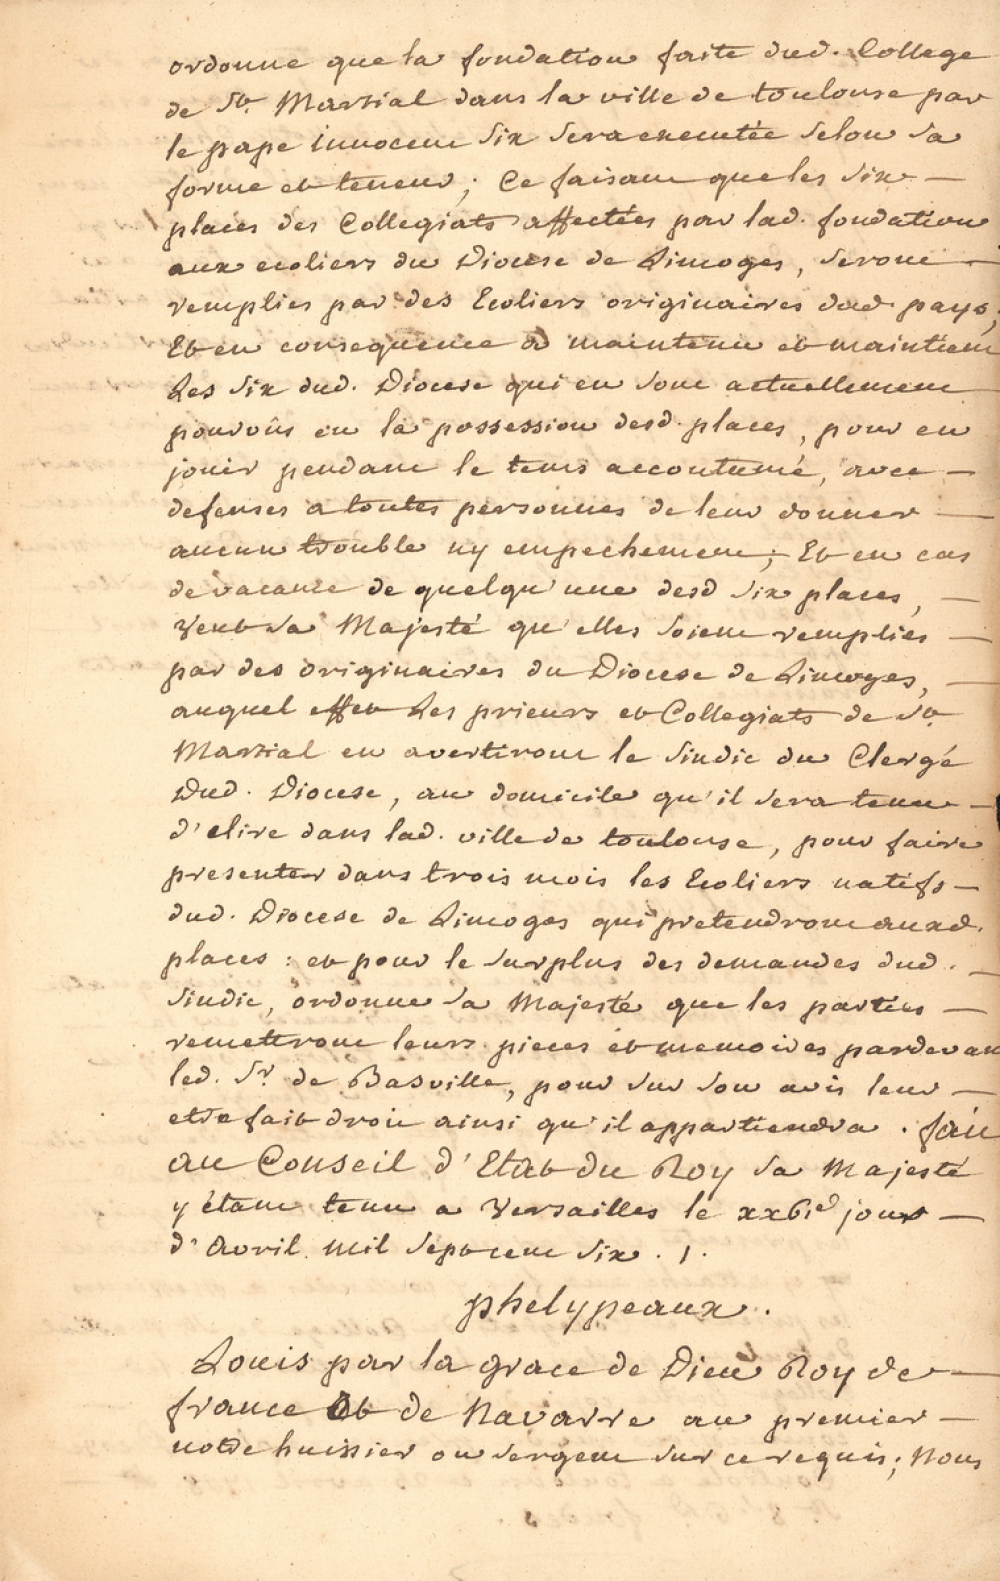 ordonne que la fondation faite dud. College
de St. Martial dans la ville de toulouse par
le pape innocent Six sera executée selon sa
forme et teneur; Ce faisant que les six —
places des Collegiats affectées par lad. fondation
aux ecoliers du Diocese de Limoges, seront —
remplies par des Ecoliers originaires dud. pays;
Et en consequence a maintenu et maintient
Les six dud. Diocese qui en sont actuellement
pourvûs en la possession desd. places, pour en
jouir pendant le tems accoutumé, avec —
defenses a toutes personnes de leur donner —
aucun trouble ny empechement; Et en cas
de vacance de quelqu'une desd six places, —
Veut sa Majesté qu'elles soient remplies —
par des originaires du Diocese de Limoges, —
auquel effet Les prieurs et Collegiats de St.
Martial en avertiront le sindic du Clergé
Dud. Diocese, au domicile qu'il sera tenu —
d'elire dans lad. ville de toulouse, pour faire
presenter dans trois mois les Ecoliers natifs —
dud. Diocese de Limoges qui pretendront auxd.
places: et pour le surplus des demandes dud. —
sindic, ordonne sa Majesté que les parties —
remettront leurs pieces et memoires pardevan
led. Sr. de Basville, pour sur son avis leur —
etre fait droit ainsi qu'il appartiendra. fait
au Conseil d'Etat du Roy sa Majesté
y étant tenu a Versailles le xxбie jour —
d'Avril mil sept cent six. /.
phelypeaux.
Louis par la grace de Dieu Roy de —
france Et de Navarre au premier —
notre huissier ou sergent sur ce requis; Nous